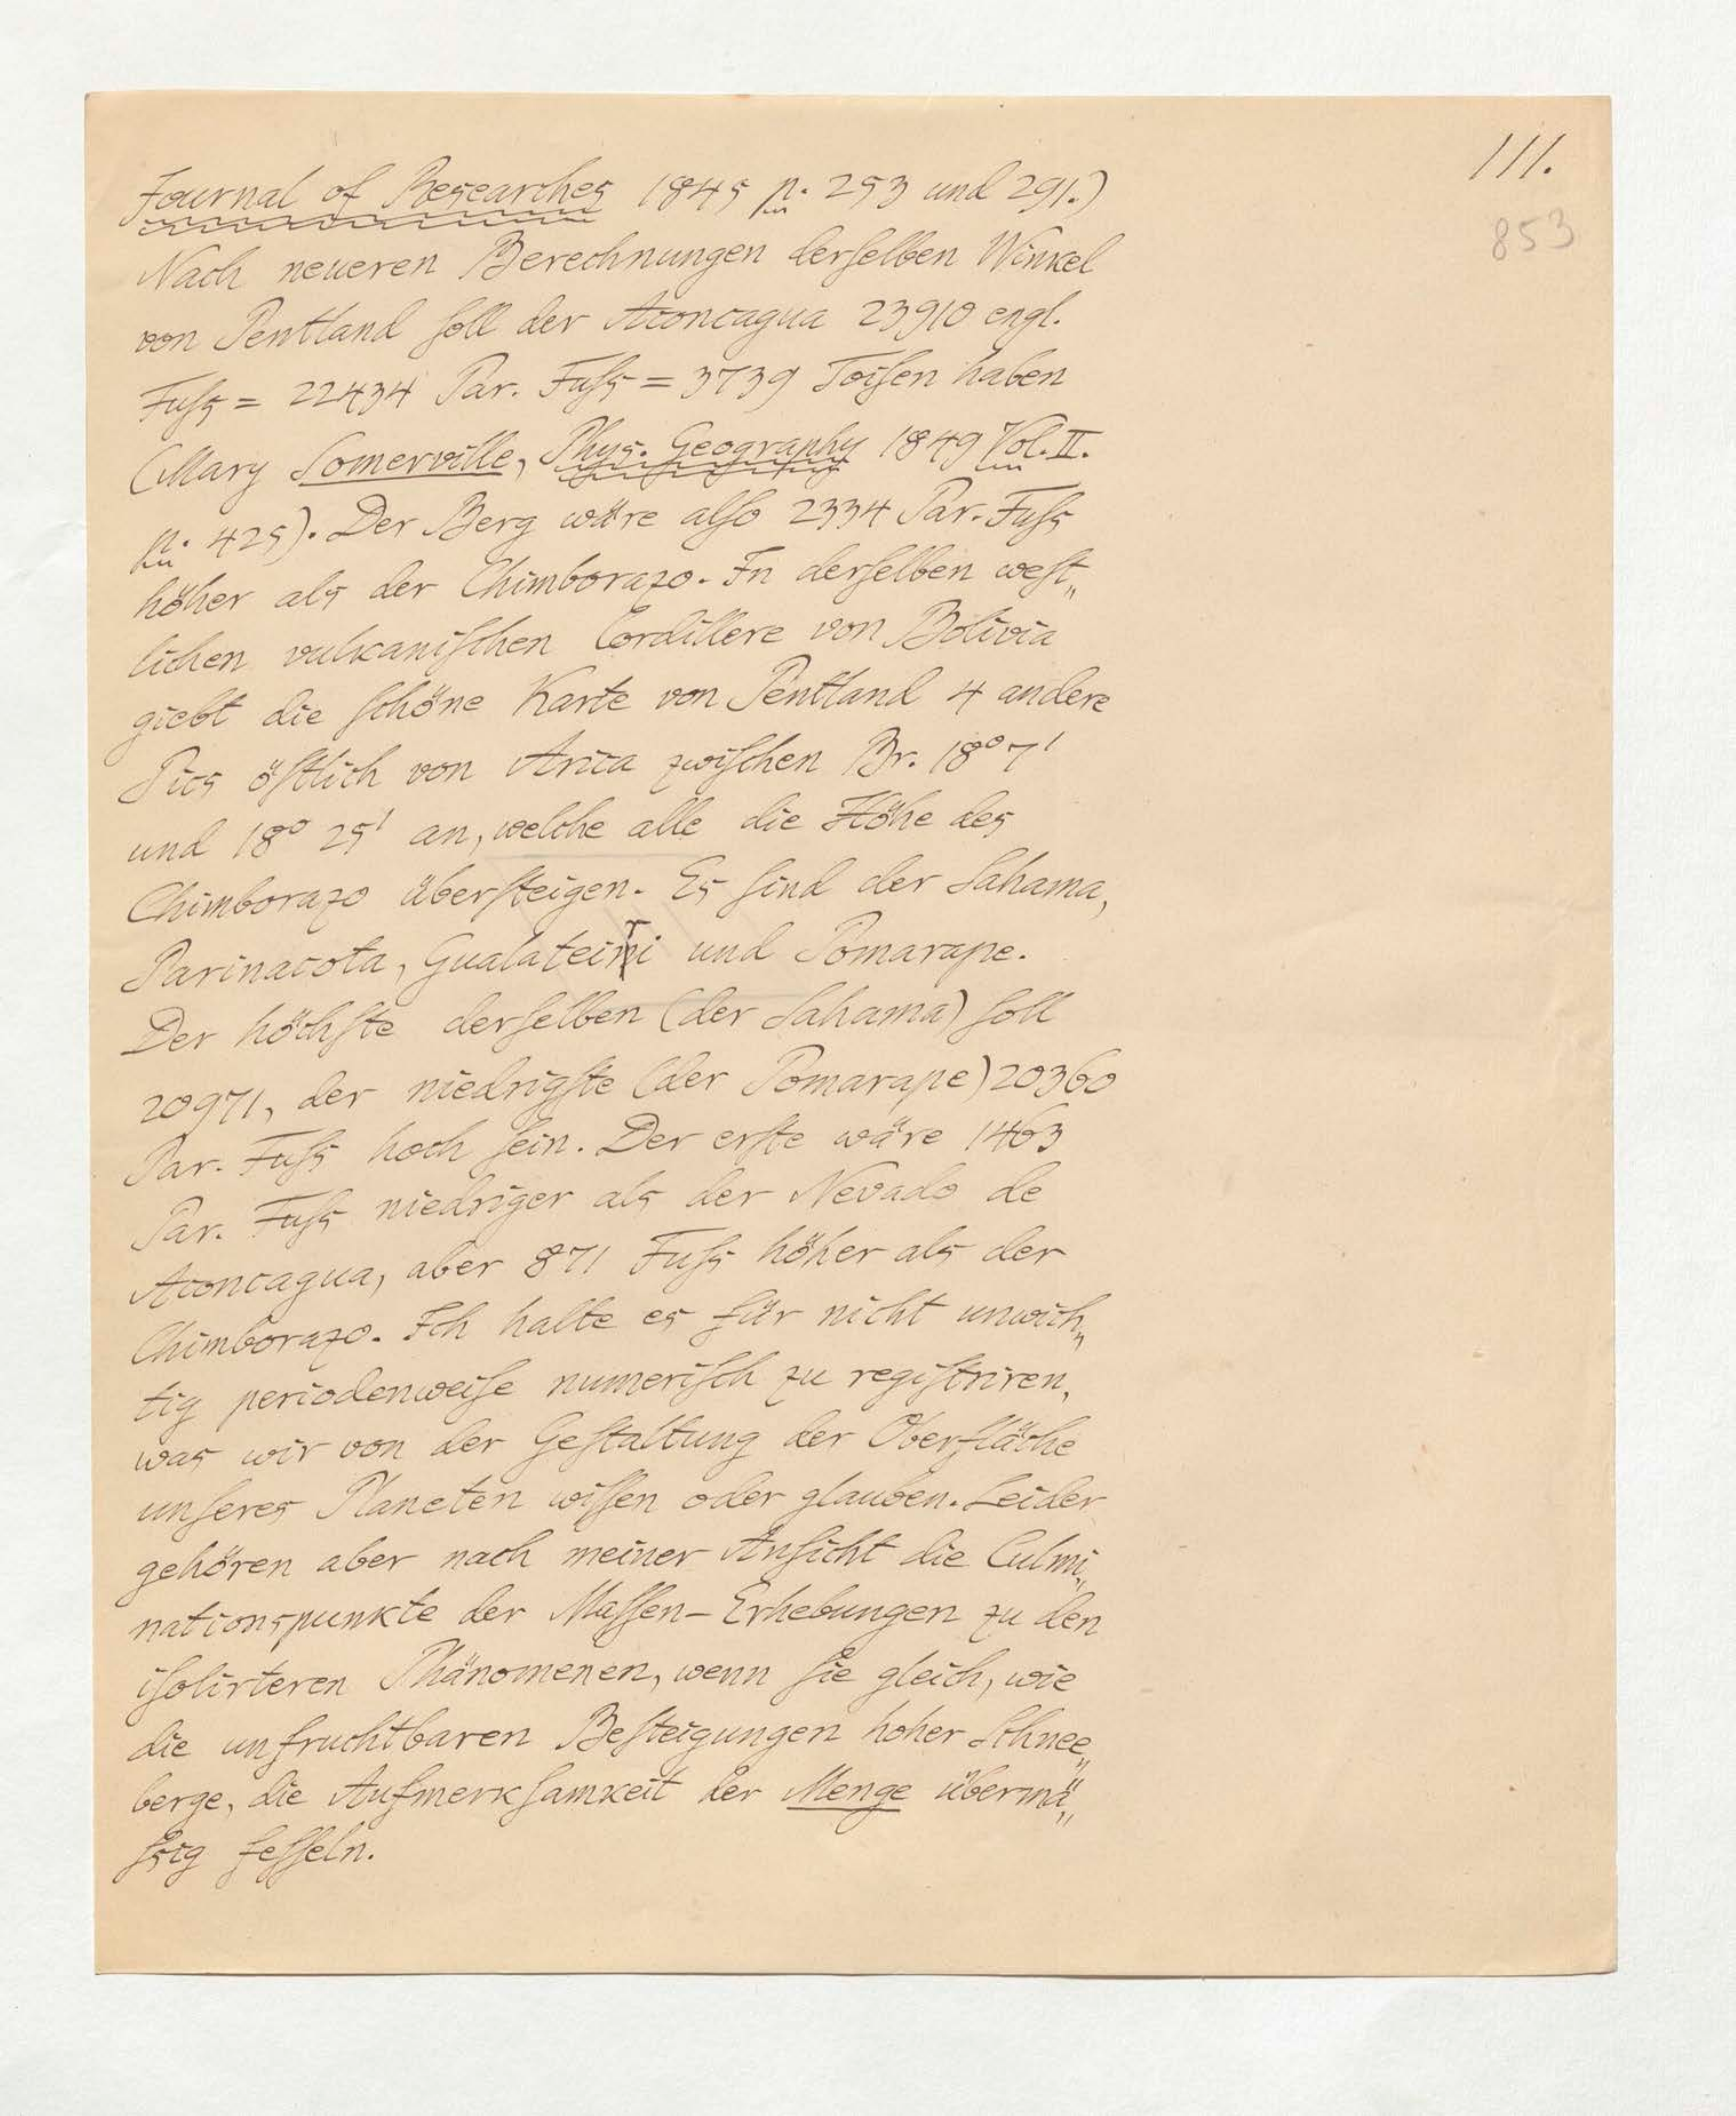 111.
853
Journal of Researches 1845 p. 253 und 291.)
Nach neueren Berechnungen derſelben Winkel
von Pentland ſoll der Aconcagua 23910 engl.
Fuſs = 22434 Par. Fuſs = 3739 Toiſen haben
(Mary Somerville, Phys. Geography 1849 Vol. II.
p. 425). Der Berg wäre alſo 2334 Par. Fuſs
höher als der Chimborazo. In derſelben weſt„
lichen vulkaniſchen Cordillere von Bolivia
giebt die ſchöne Karte von Pentland 4 andere
Pics öſtlich von Arica zwiſchen Br. 18° 7'
und 18° 25' an, welche alle die Höhe des
Chimborazo überſteigen. Es ſind der Sahama,
Parinacota, Gualateiri und Pomarape.
Der höchſte derſelben (der Sahama) ſoll
20971, der niedrigſte (der Pomarape) 20360
Par. Fuſs hoch ſein. Der erſte wäre 1463
Par. Fuſs niedriger als der Nevado de
Aconcagua, aber 871 Fuſs höher als der
Chimborazo. Ich halte es für nicht unwich„
tig periodenweiſe numeriſch zu regiſtriren,
was wir von der Geſtaltung der Oberfläche
unſeres Planeten wiſſen oder glauben. Leider
gehören aber nach meiner Anſicht die Culmi„
nationspunkte der Maſſen-Erhebungen zu den
iſolirteren Phänomenen, wenn ſie gleich, wie
die unfruchtbaren Beſteigungen hoher Schnee„
berge, die Aufmerkſamkeit der Menge übermä„
ſsig feſſeln.